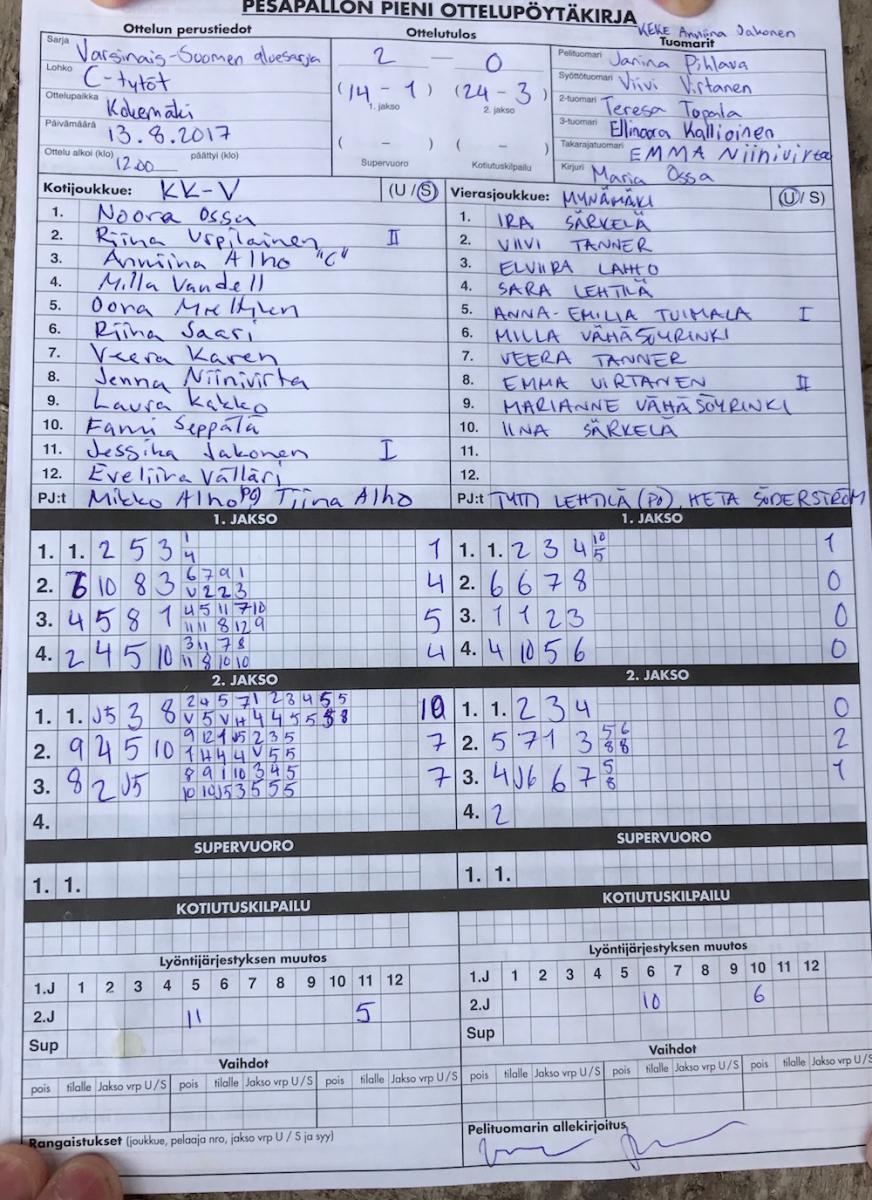 PESÄPALLON PIENI OTTELUPÖYTÄKIRJA
KEKE Anniina Jakonen
Ottelun perustiedot
Sarja Varsinais-Suomen aluesarja
Lohko C-tytöt
Ottelupaikka Kokemäki
Päivämäärä 13.8.2017
Ottelu alkoi (klo) 12.00 päättyi (klo)
Ottelutulos
2 — 0
(14 - 1) (24 - 3)
1. jakso 2. jakso
( - ) ( - )
Supervuoro Kotiutuskilpailu
Tuomarit
Pelituomari Janina Pihlava
Syöttötuomari Viivi Virtanen
2-tuomari Teresa Topala
3-tuomari Ellinoora Kallioinen
Takarajatuomari EMMA Niinivirta
Kirjuri Maria Ossa
Kotijoukkue: KK-V (U / S)
1. Noora Ossa
2. Riina Uspilainen II
3. Anniina Alho "C"
4. Milla Vandell
5. Oona
6. Riina Saari
7. Veera Karen
8. Jenna Niinivirta
9. Laura Kakko
10. Fanni Seppälä
11. Jessika Jakonen I
12. Eveliina Välläri
PJ:t Mikko Alho PJ Tiina Alho
Vierasjoukkue: MYNÄMÄKI (U / S)
1. IRA SÄRKELÄ
2. VIIVI TANNER
3. ELVIIRA LAHTO
4. SARA LEHTILÄ
5. ANNA-EMILIA TUIMALA I
6. MILLA VÄHÄSÖYRINKI
7. VEERA TANNER
8. EMMA VIRTANEN II
9. MARIANNE VÄHÄSÖYRINKI
10. IINA SÄRKELÄ
11.
12.
PJ:t TYTTI LEHTILÄ (PJ), HETA SÖDERSTRÖM
1. JAKSO
1. 1. 2 5 3 1 1
4
2. 6 10 8 3 6 7 9 1 4
V 2 2 3
3. 4 5 8 1 4 5 11 7 10 5
11 11 8 12 9
4. 2 4 5 10 3 11 7 8 4
11 8 10 10
2. JAKSO
1. 1. J5 3 8 2 4 5 7 1 2 3 4 5 5 10
V 5 V H 4 4 5 5 5 8
2. 9 4 5 10 9 12 1 J5 2 3 5 7
1 H 4 4 V 5 5
3. 8 2 J5 8 9 1 10 3 4 5 7
10 10 J5 3 5 5 5
4.
SUPERVUORO
1. 1.
KOTIUTUSKILPAILU
Lyöntijärjestyksen muutos
1.J 1 2 3 4 5 6 7 8 9 10 11 12
2.J 11 5
Sup
Vaihdot
pois tilalle Jakso vrp U/S pois tilalle Jakso vrp U/S pois tilalle Jakso vrp U/S
Rangaistukset (joukkue, pelaaja nro, jakso vrp U / S ja syy)
1. JAKSO
1. 1. 2 3 4 10 1
5
2. 6 6 7 8 0
3. 1 1 2 3 0
4. 4 10 5 6 0
2. JAKSO
1. 1. 2 3 4 0
2. 5 7 1 3 5 6 2
8 8
3. 4 J6 6 7 5 1
8
4. 2
SUPERVUORO
1. 1.
KOTIUTUSKILPAILU
Lyöntijärjestyksen muutos
1.J 1 2 3 4 5 6 7 8 9 10 11 12
2.J 10 6
Sup
Vaihdot
pois tilalle Jakso vrp U/S pois tilalle Jakso vrp U/S pois tilalle Jakso vrp U/S
Pelituomarin allekirjoitus